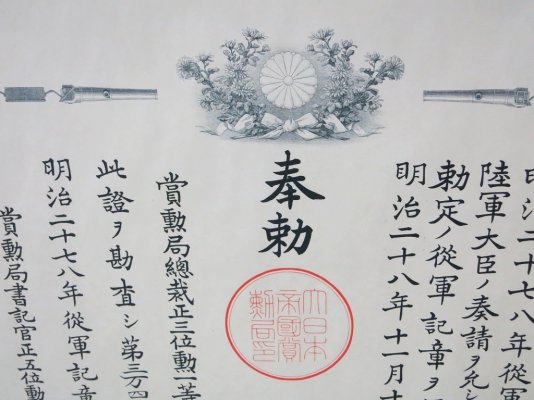 明治二十七八年從軍
陸軍大臣ノ奏請ヲ允シ
勅定ノ從軍記章ヲ
明治二十八年十一月十
奉勅
大日本
帝國賞
勲局印
賞勲局總裁正三位勲一等
此證ヲ勘査シ第三万四
明治二十七八年從軍記章
賞勲局書記官正五位勲